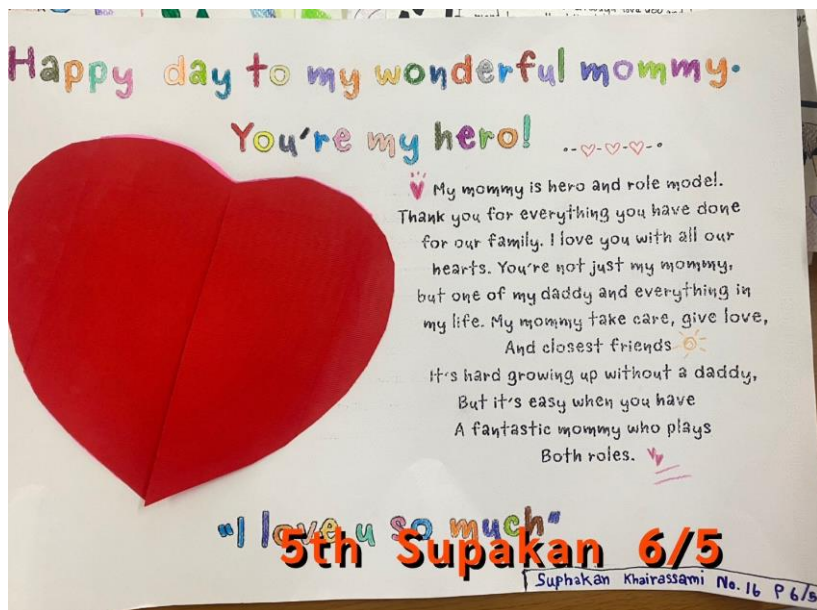 Happy day to my wonderful mommy.
You're my hero!
My mommy is hero and role model.
Thank you for everything you have done
for our family. I love you with all our
hearts. You're not just my mommy,
but one of my daddy and everything in
my life. My mommy take care, give love,
And closest friends
It's hard growing up without a daddy,
But it's easy when you have
A fantastic mommy who plays
Both roles.
"I love u so much"
5th Supakan 6/5
Suphakan Khairassami No.16 P 6/5